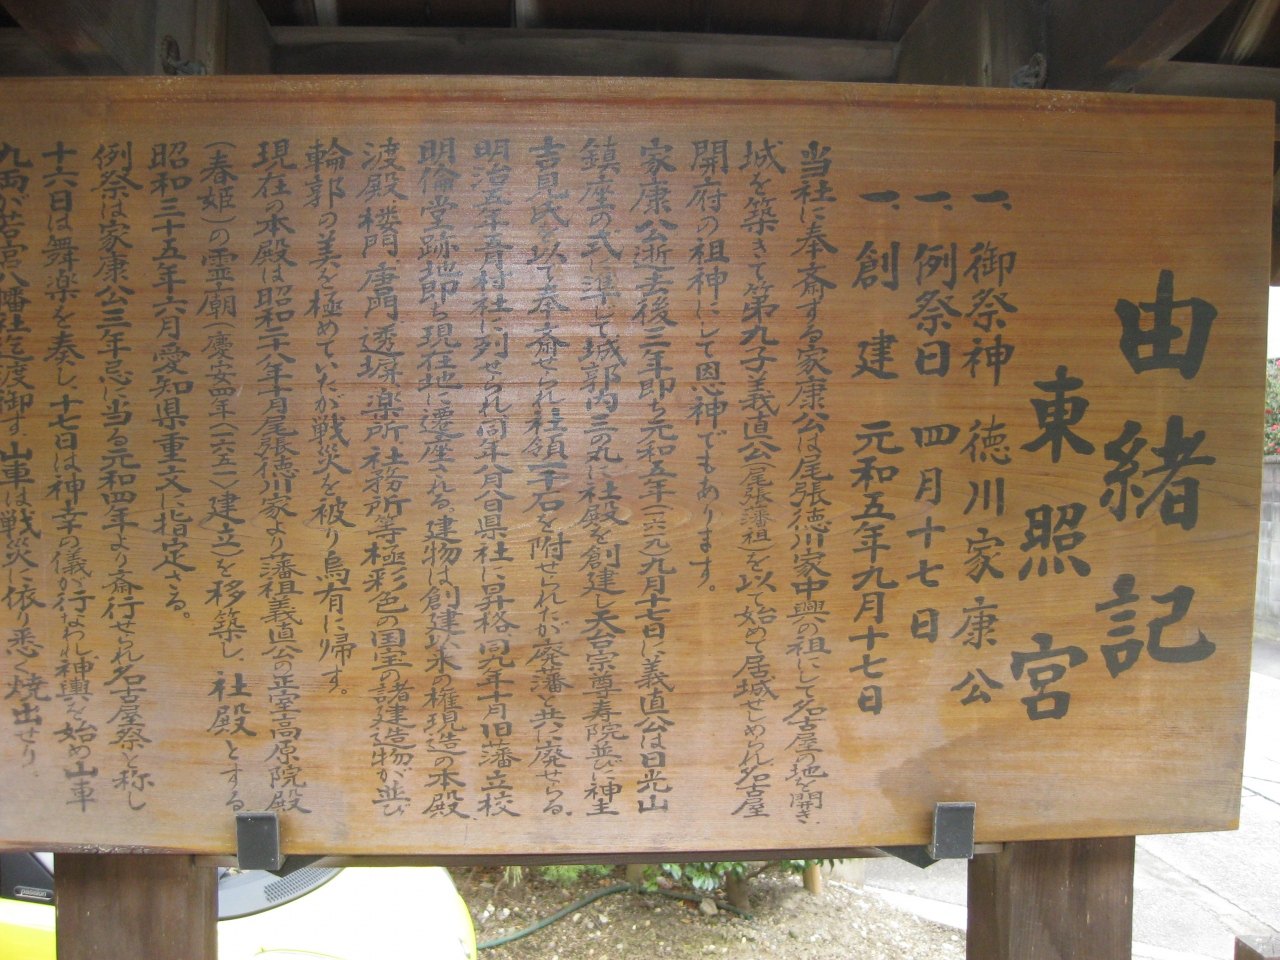 由緒記
東照宮
一、御祭神 徳川家康公
一、例祭日 四月十七日
一、創建 元和五年九月十七日
当社に奉斎する家康公は尾張徳川家中興の祖にして名古屋の地を開き、
城を築きて第九子義直公(尾張藩祖)を以て始めて居城せしめられ名古屋
開府の祖神にして恩神でもあります。
家康公逝去後三年即ち元和五年(一六一九)九月十七日に義直公は日光山
鎮座の式に準じて城郭内三の丸に社殿を創建し天台宗尊寿院並びに神主
吉見氏を以て奉斎せられ社領一千石を附せられたが廃藩と共に廃せらる。
明治五年五月村社に列せられ同年八月八日県社に昇格同九年十月旧藩立校
明倫堂跡地即ち現在地に遷座される。建物は創建以来の権現造の本殿
渡殿、楼門、唐門、透塀、楽所、社務所等極彩色の国宝の諸建造物が並び
輪郭の美を極めていたが戦災を被り烏有に帰す。
現在の本殿は昭和二十八年十月尾張徳川家より藩祖義直公の正室高原院殿
(春姫)の霊廟(慶安四年(一六五一)建立)を移築し、社殿とする
昭和三十五年六月愛知県重文に指定さる。
例祭は家康公三年忌に当る元和四年より斎行せられ名古屋祭と称し
十六日は舞楽を奏し、十七日は神幸の儀が行なわれ神輿を始め山車
九両が若宮八幡社迄渡御す山車は戦災に依り悉く焼出せり
passion